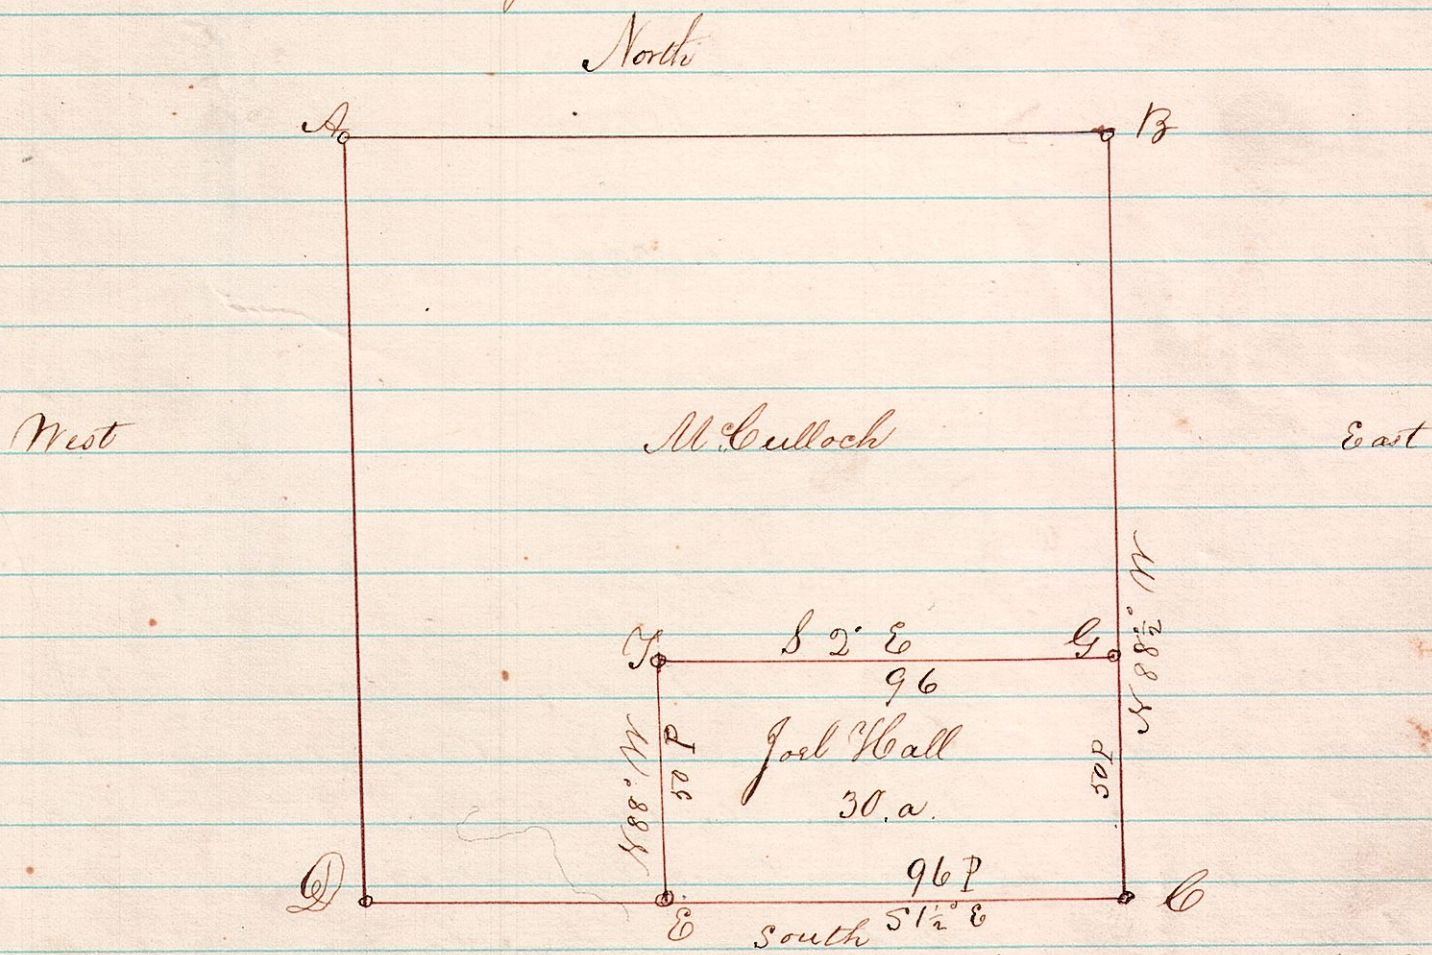 North
A
B
West
McCulloch
East
N 88½° W
F
S 2° E
G
96
N 88° W
50 P
Joel Hall
50P
30.a.
96 P
D
E
S1½° E
C
South